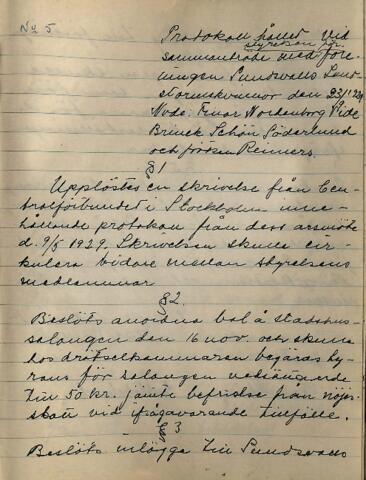 No 5
Protokoll hållet vid
styrelsen för
sammanträde med före-
ningen Sundsvalls Land-
stormskvinnor den 23/ 1929
Nvds: Fruar Nordenborg Vide
Brinck Schön Söderlund
och fröken Reimers.
§1
Upplästes en skrivelse från Cen-
tralförbundet i Stockholm inne-
hållande protokoll från dess årsmöte
d. 9/5 1929. Skrivelsen skulle cir-
kulera vidare mellan styrelsens
medlemmar
§2.
Beslöts anordna bal å stadshus-
salongen den 16 nov. och skulle
hos drätselkammaren begäras hy-
rans för salongen nedsättande
till 50 kr. jämte befrielse från nöjes-
skatt vid ifrågavarande tillfälle.
§3
Beslöts inlägga till Sundsvalls